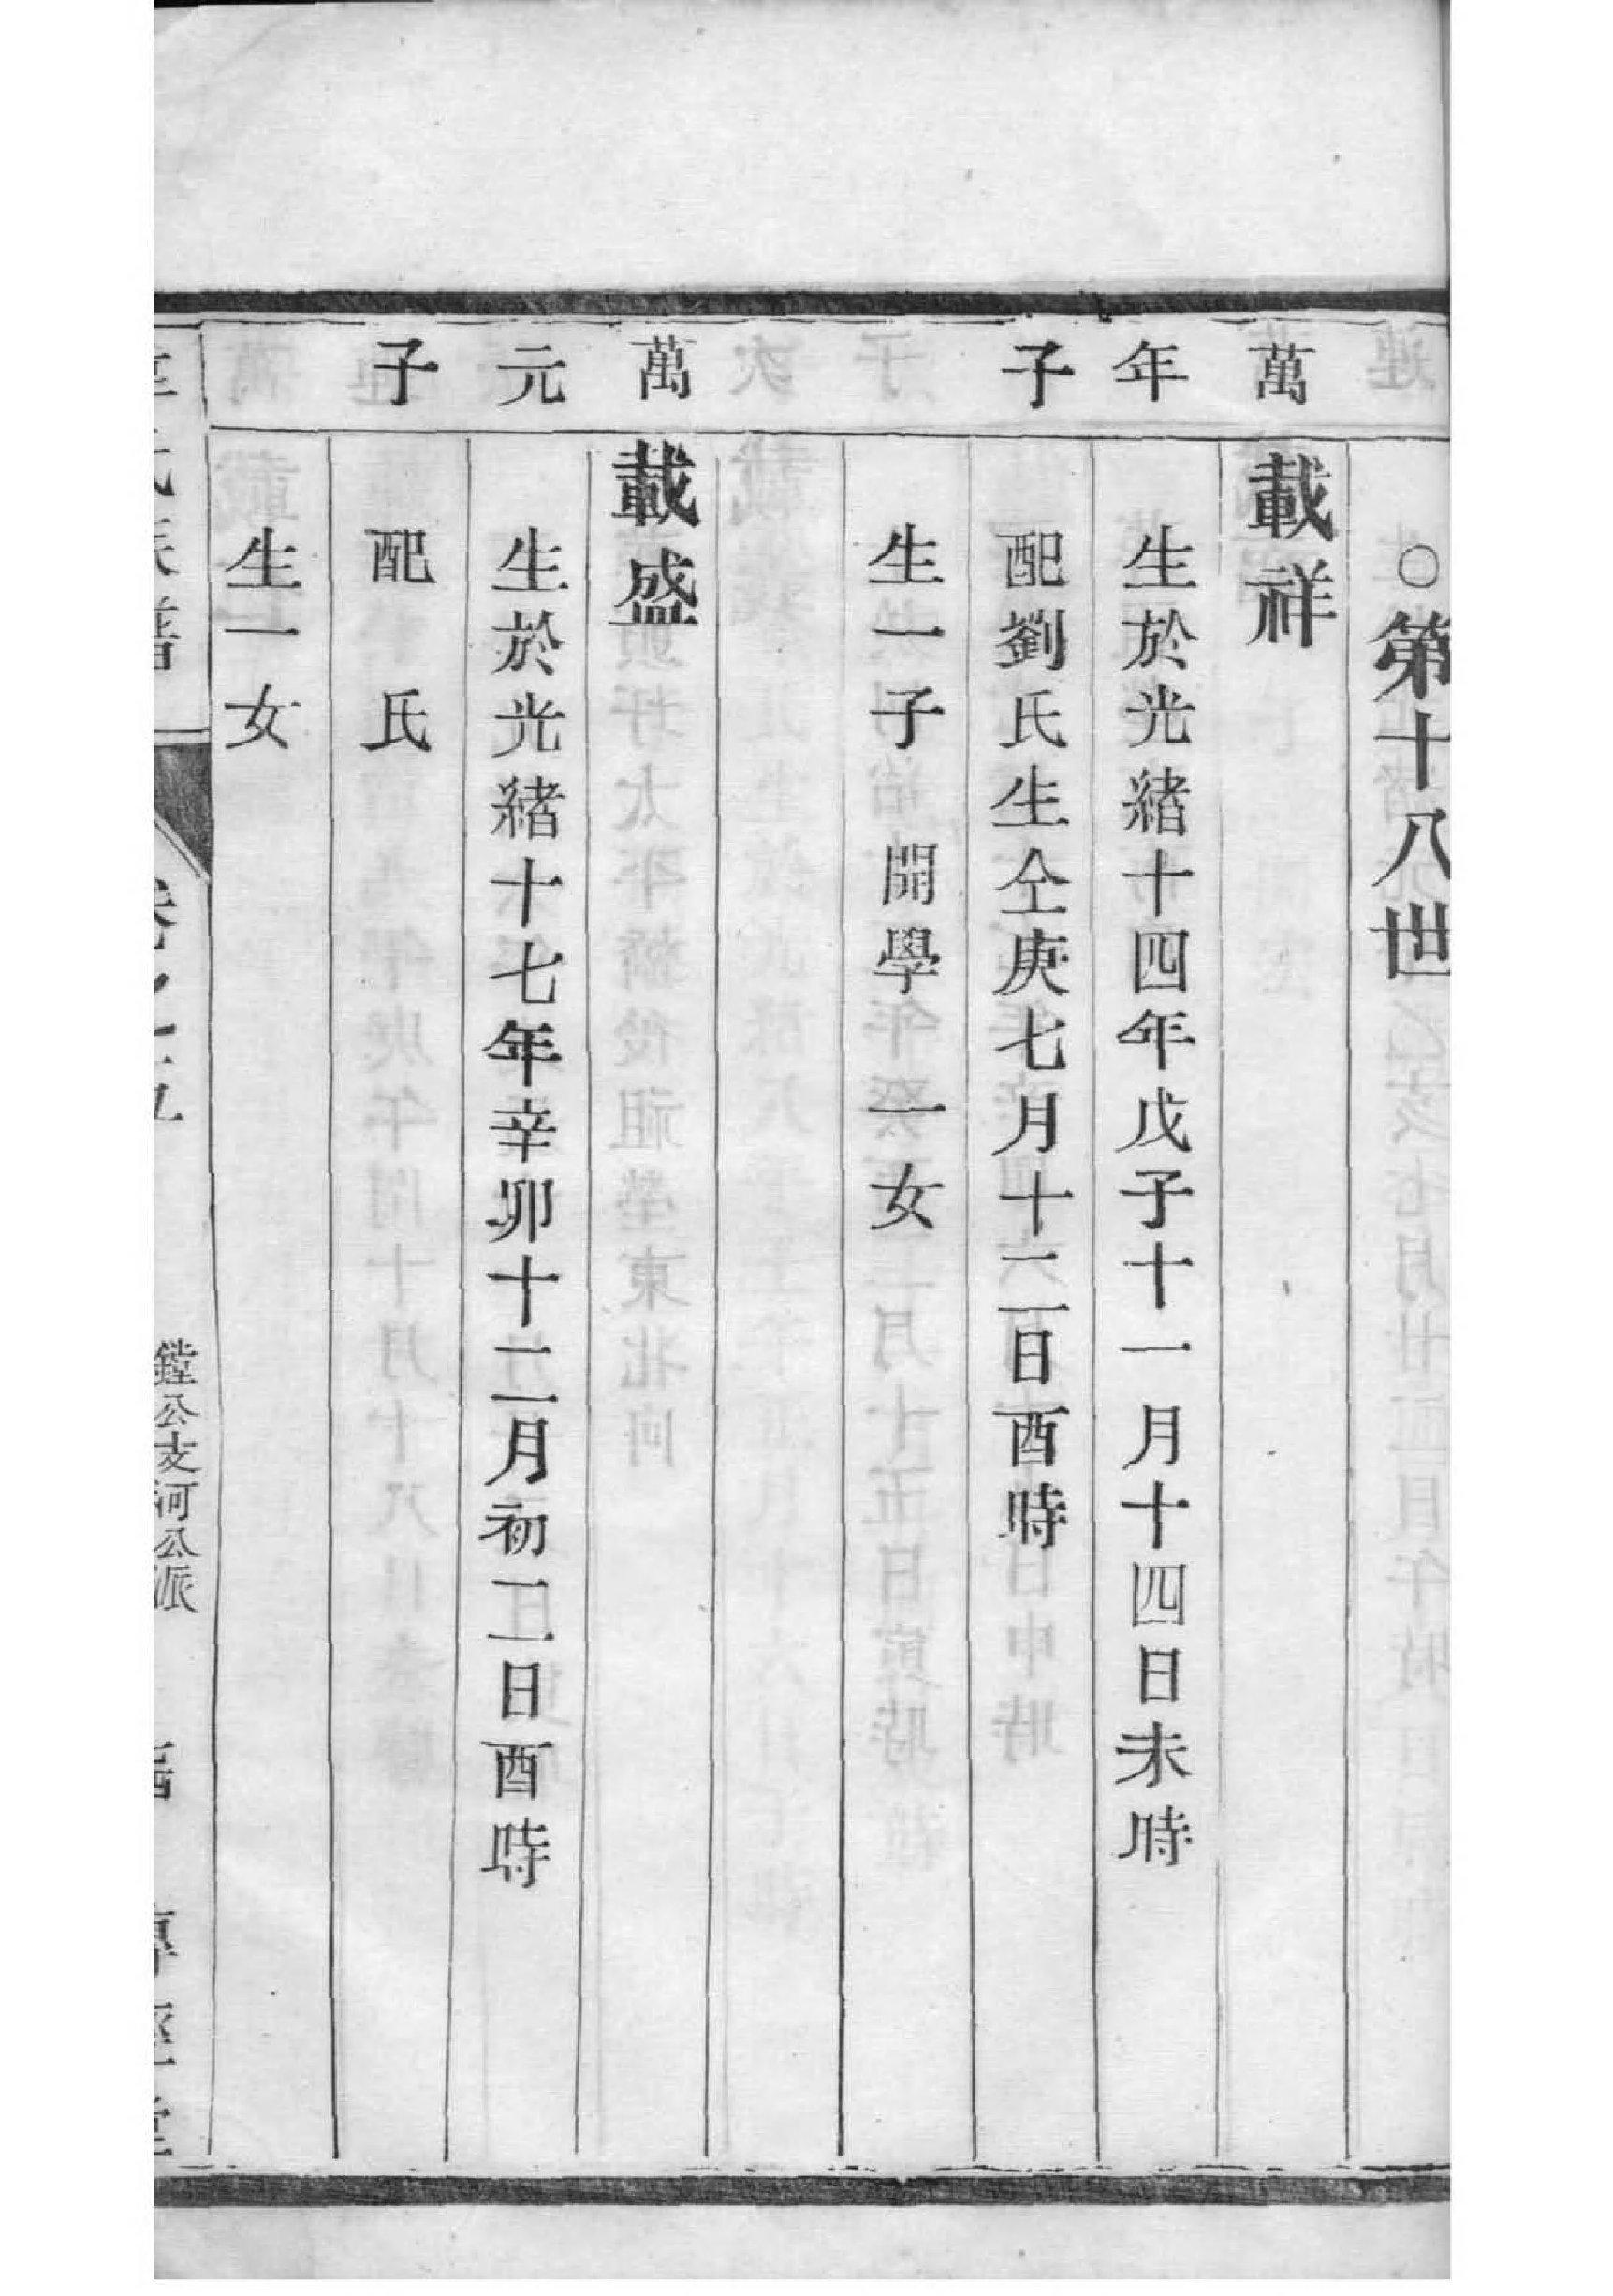 ○第十八世
萬年子
載祥
生於光緒十四年戊子十一月十四日未時
配劉氏生仝庚七月十二日酉時
生一子 開學 一女
萬元子
載盛
生於光緒十七年辛卯十二月初二日酉時
配 氏
生一女
鏜公支河公派